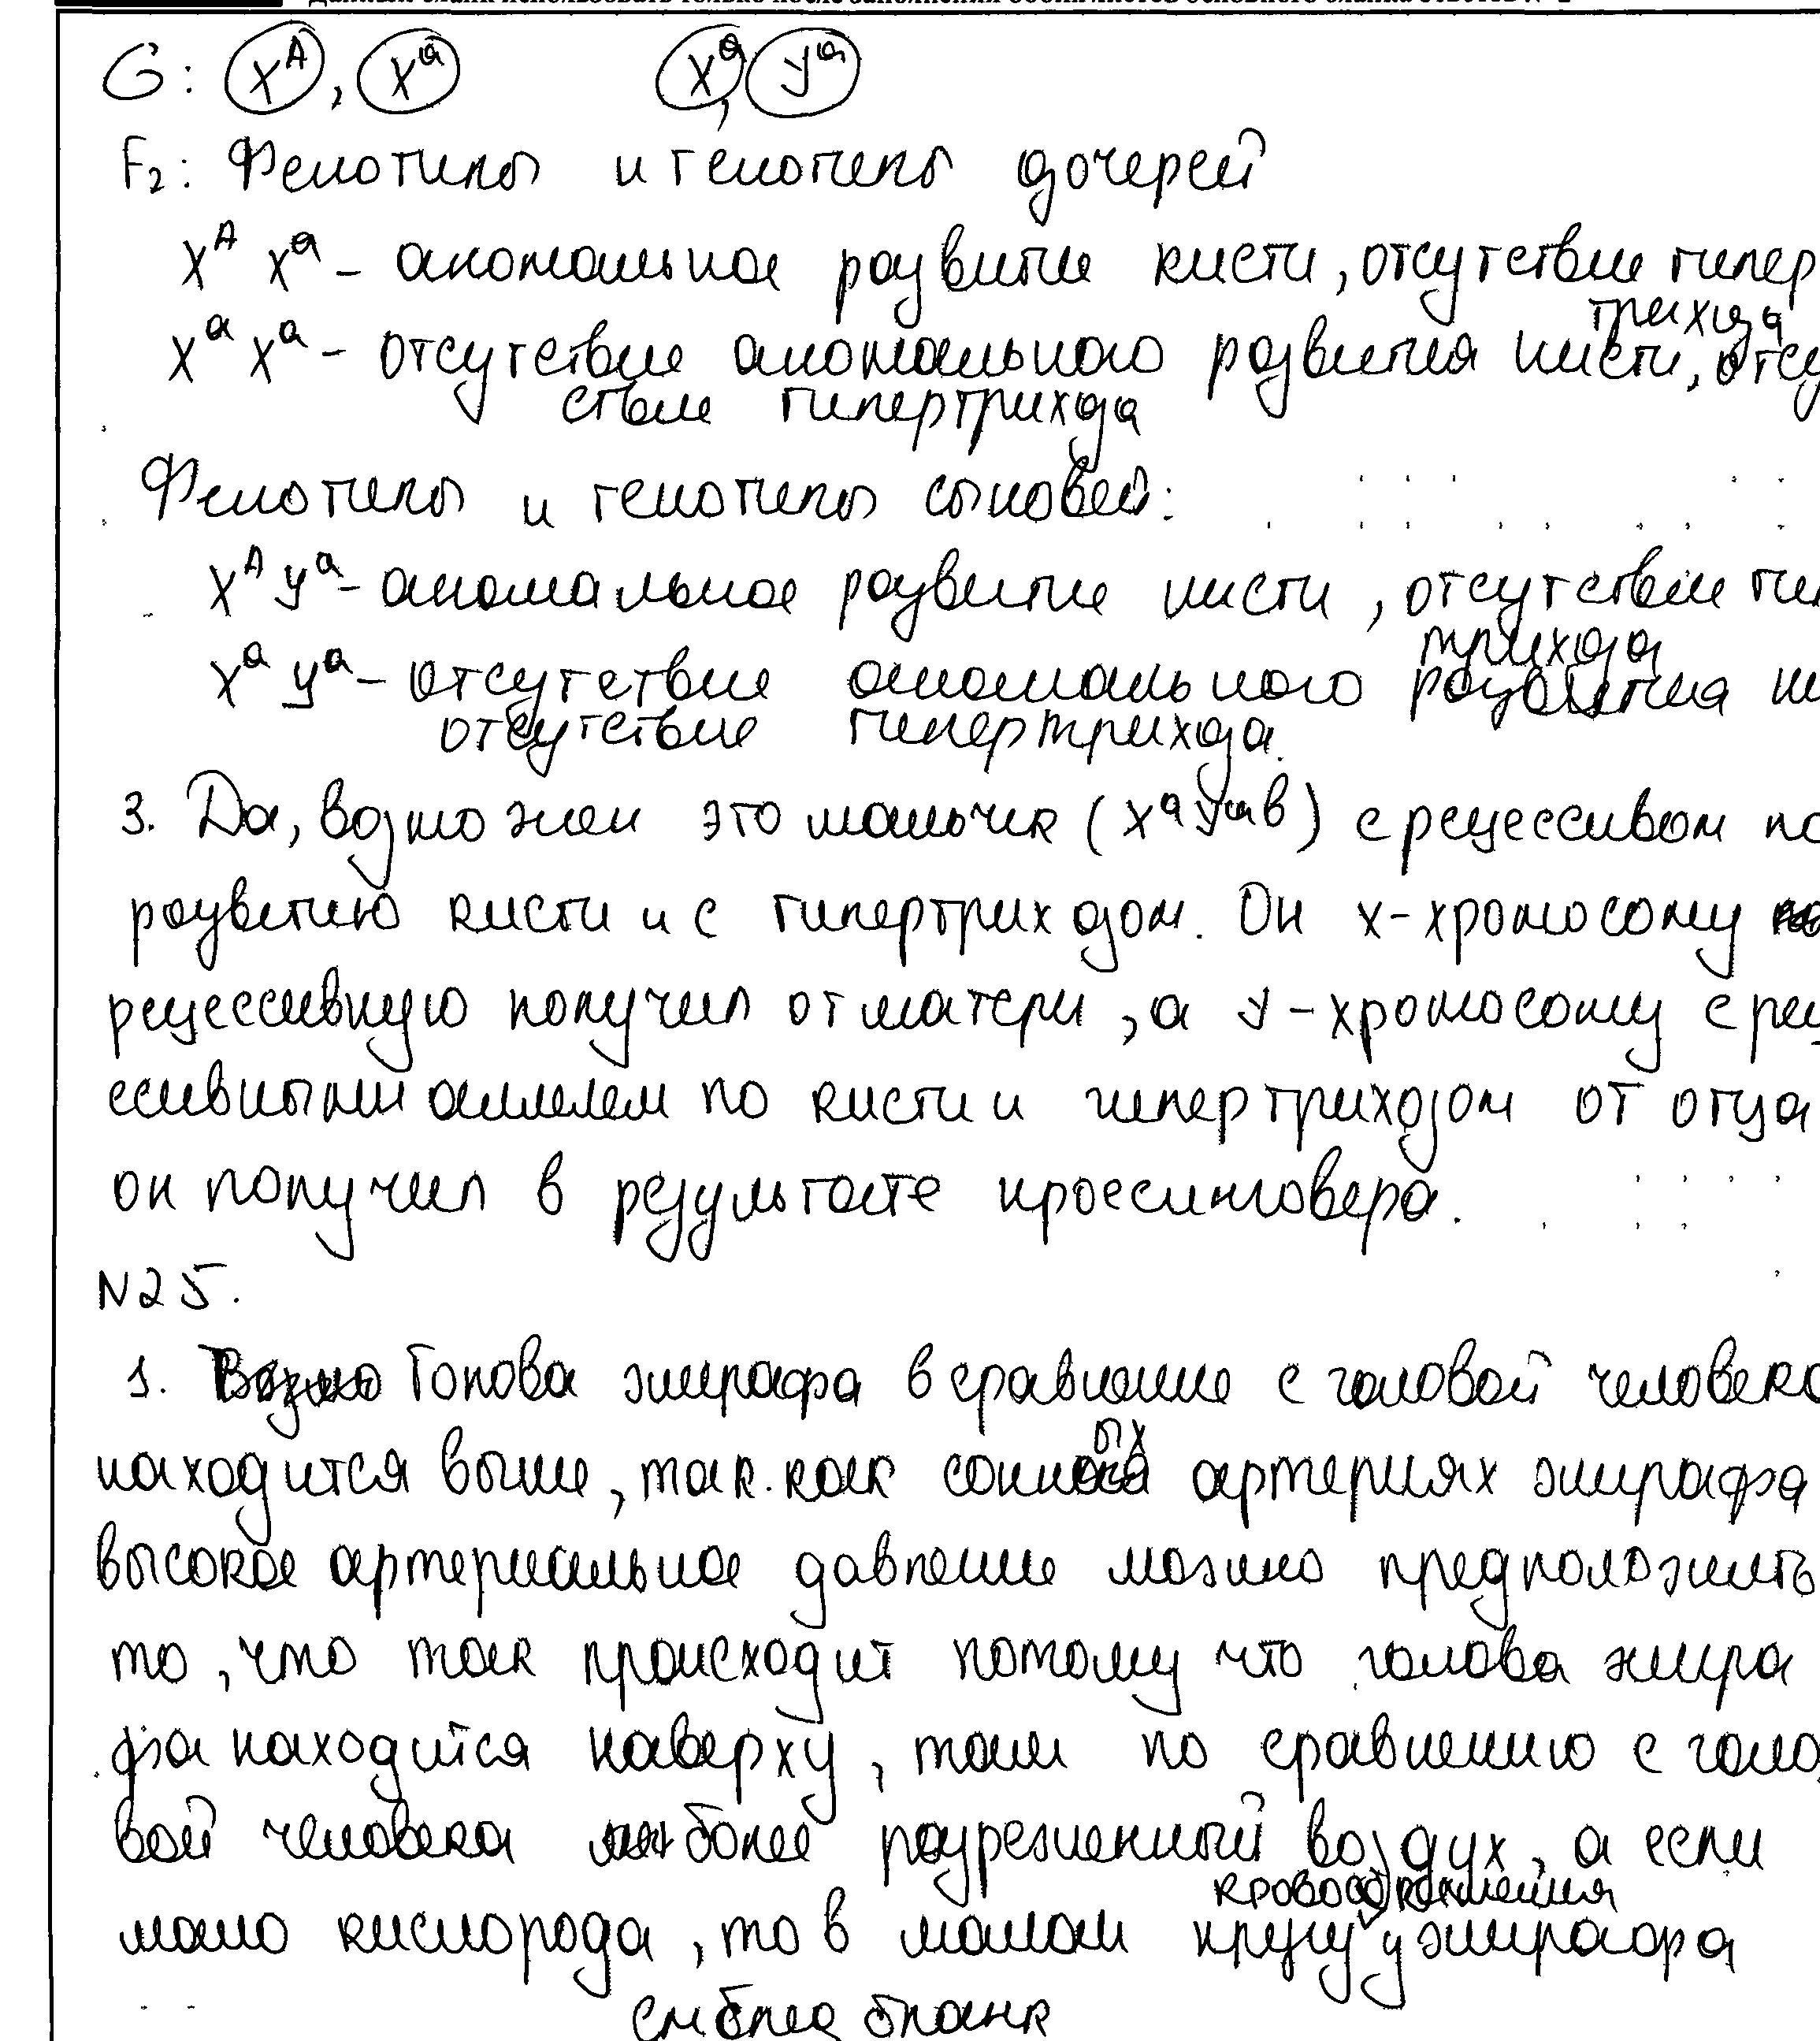 G: X^A, X^a X^a, Y^a
F2: Фенотипы и генотипы дочерей
X^A X^a - аномальное развитие кисти, отсутствие гипер
трихоза
X^a X^a - отсутствие аномального развития кисти, отсу
ствие гипертрихоза
Фенотипы и генотипы сыновей:
X^A Y^a - аномальное развитие кисти, отсутствие гип
трихоза
X^a Y^a - отсутствие аномального развития ки
отсутствие гипертрихоза.
3. Да, возможен это мальчик (X^a Y^ab) с рецессивом по
развитию кисти и с гипертрихозом. Он х-хромосому
рецессивную получил от матери, а У-хромосому с рец
ессивными аллелем по кисти и гипертрихозом от отца
он получил в результате кроссинговера.
N25.
1. Голова жирафа в сравнение с головой человека
находится выше, так. как сонных артериях жирафа
высокое артериальное давление можно предположить
то, что так происходит потому что голова жира
фа находится наверху, там по сравнению с голо
вой человека более разреженный воздух, а если
кровообращения
мало кислорода, то в малом кругу у жирафа
см след бланк